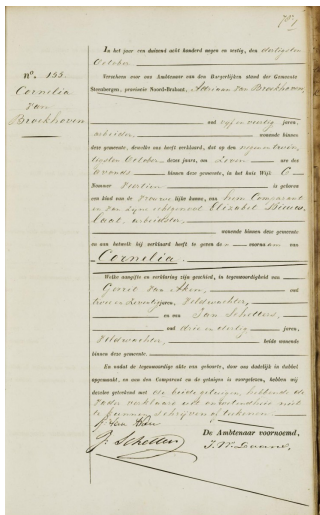 In het jaar een duizend acht honderd negen en zestig, den dertigsten
October
Verscheen voor ons Ambtenaar van den Burgerlijken stand der Gemeente
Steenbergen, provincie Noord-Brabant, Adriaan van Broekhoven,
n°. 155.
Cornelia
van
Broekhoven
oud vijf en veertig jaren,
arbeider wonende binnen
deze gemeente, dewelke ons heeft verklaard, dat op den negen en twin-
tigsten October dezes jaars, om zeven ure des
avonds binnen deze gemeente, in het huis Wijk C
Nummer veertien is geboren
een kind van de vrouwelijke kunne, van hem Comparant
en van zijne echtgenoot Elizabet
arbeidster,
wonende binnen deze gemeente
en aan hetwelk hij verklaard heeft te geven de voornaam van
Cornelia.
Welke aangifte en verklaring zijn geschied, in tegenwoordigheid van
van Aken, oud
twee en zeventig jaren, Veldwachter,
en van Jan Schellens,
oud drie en dertig jaren,
Veldwachter, beide wonende
binnen deze gemeente
En nadat de tegenwoordige akte van geboorte, door ons dadelijk in dubbel
opgemaakt, en aan den Comparant en de getuigen is voorgelezen, hebben wij
dezelve geteekend met de beide getuigen, hebbende de
vader verklaard uit onbedrevenheid niet
te kunnen schrijven of teekenen
van Aken
J. Schellens
De Ambtenaar voornoemd,